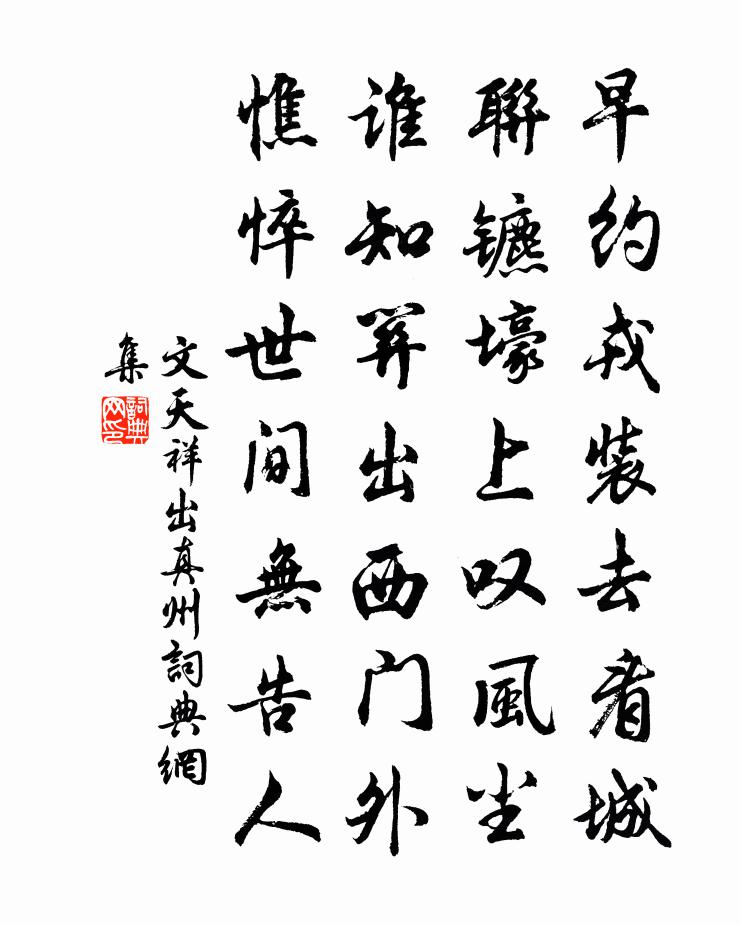 早约戎装去看城
聯镳壕上叹風尘
谁知关出西门外
憔悴世间無告人
文天祥出真州詞典網
集
詞典
网印